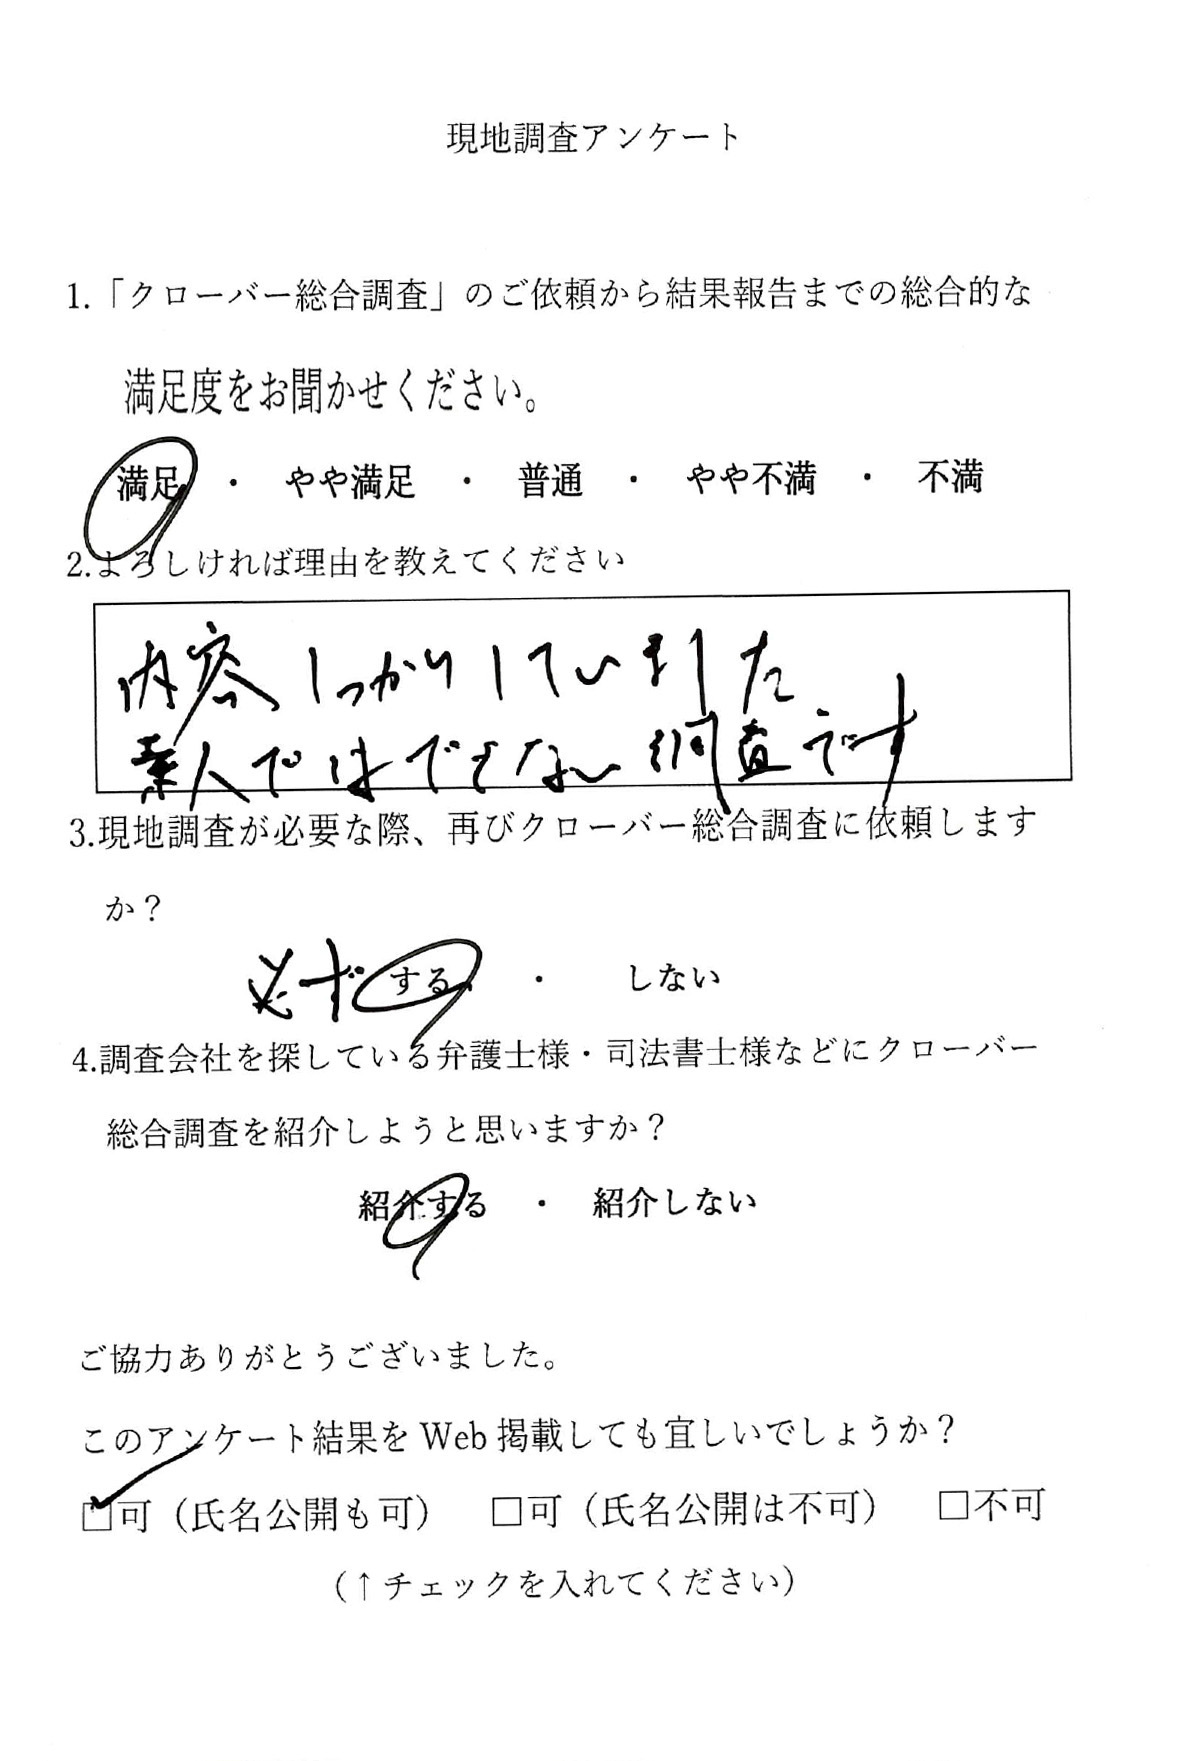 現地調査アンケート
1.「クローバー総合調査」のご依頼から結果報告までの総合的な
満足度をお聞かせください。
満足 ・ やや満足 ・ 普通 ・ やや不満 ・ 不満
2.よろしければ理由を教えてください
内容しっかりしていました
素人ではできない調査です
3.現地調査が必要な際、再びクローバー総合調査に依頼します
か？
必ず する ・ しない
4.調査会社を探している弁護士様・司法書士様などにクローバー
総合調査を紹介しようと思いますか？
紹介する ・ 紹介しない
ご協力ありがとうございました。
このアンケート結果を Web 掲載しても宜しいでしょうか？
□可（氏名公開も可） □可（氏名公開は不可） □不可
（↑チェックを入れてください）